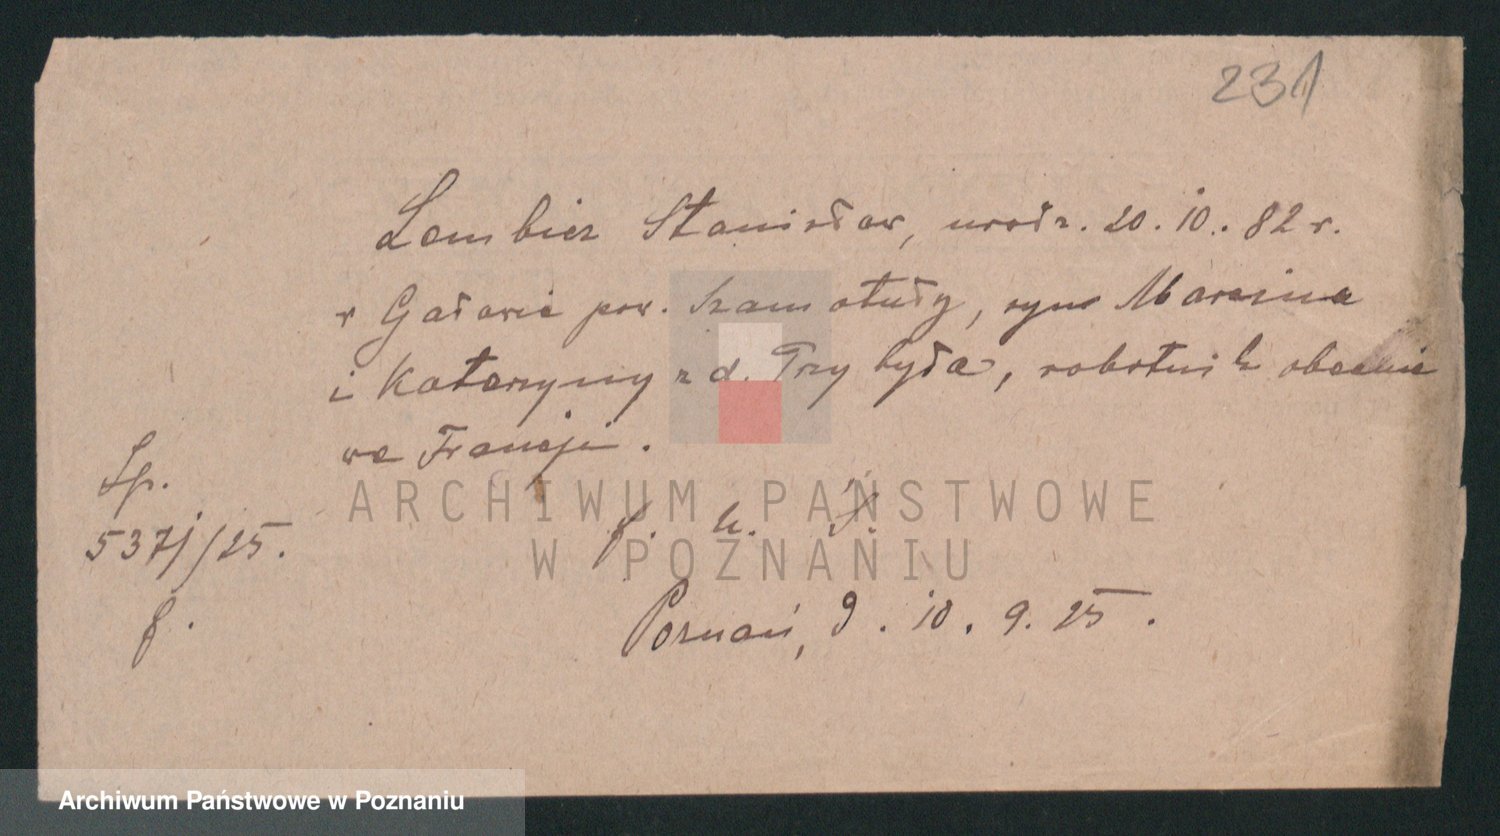 231
Lembicz Stanisław, urodz. 20.10.82 r.
w Gałowie pow. Szamotuły, syn Marcina
i Katarzyny z d. Przybyła, robotnik obecnie
we Francji.
Sp.
537j/25.
f. k. S.
f.
Poznań, d. 10. 9. 25.
ARCHIWUM PAŃSTWOWE
W POZNANIU
Archiwum Państwowe w Poznaniu